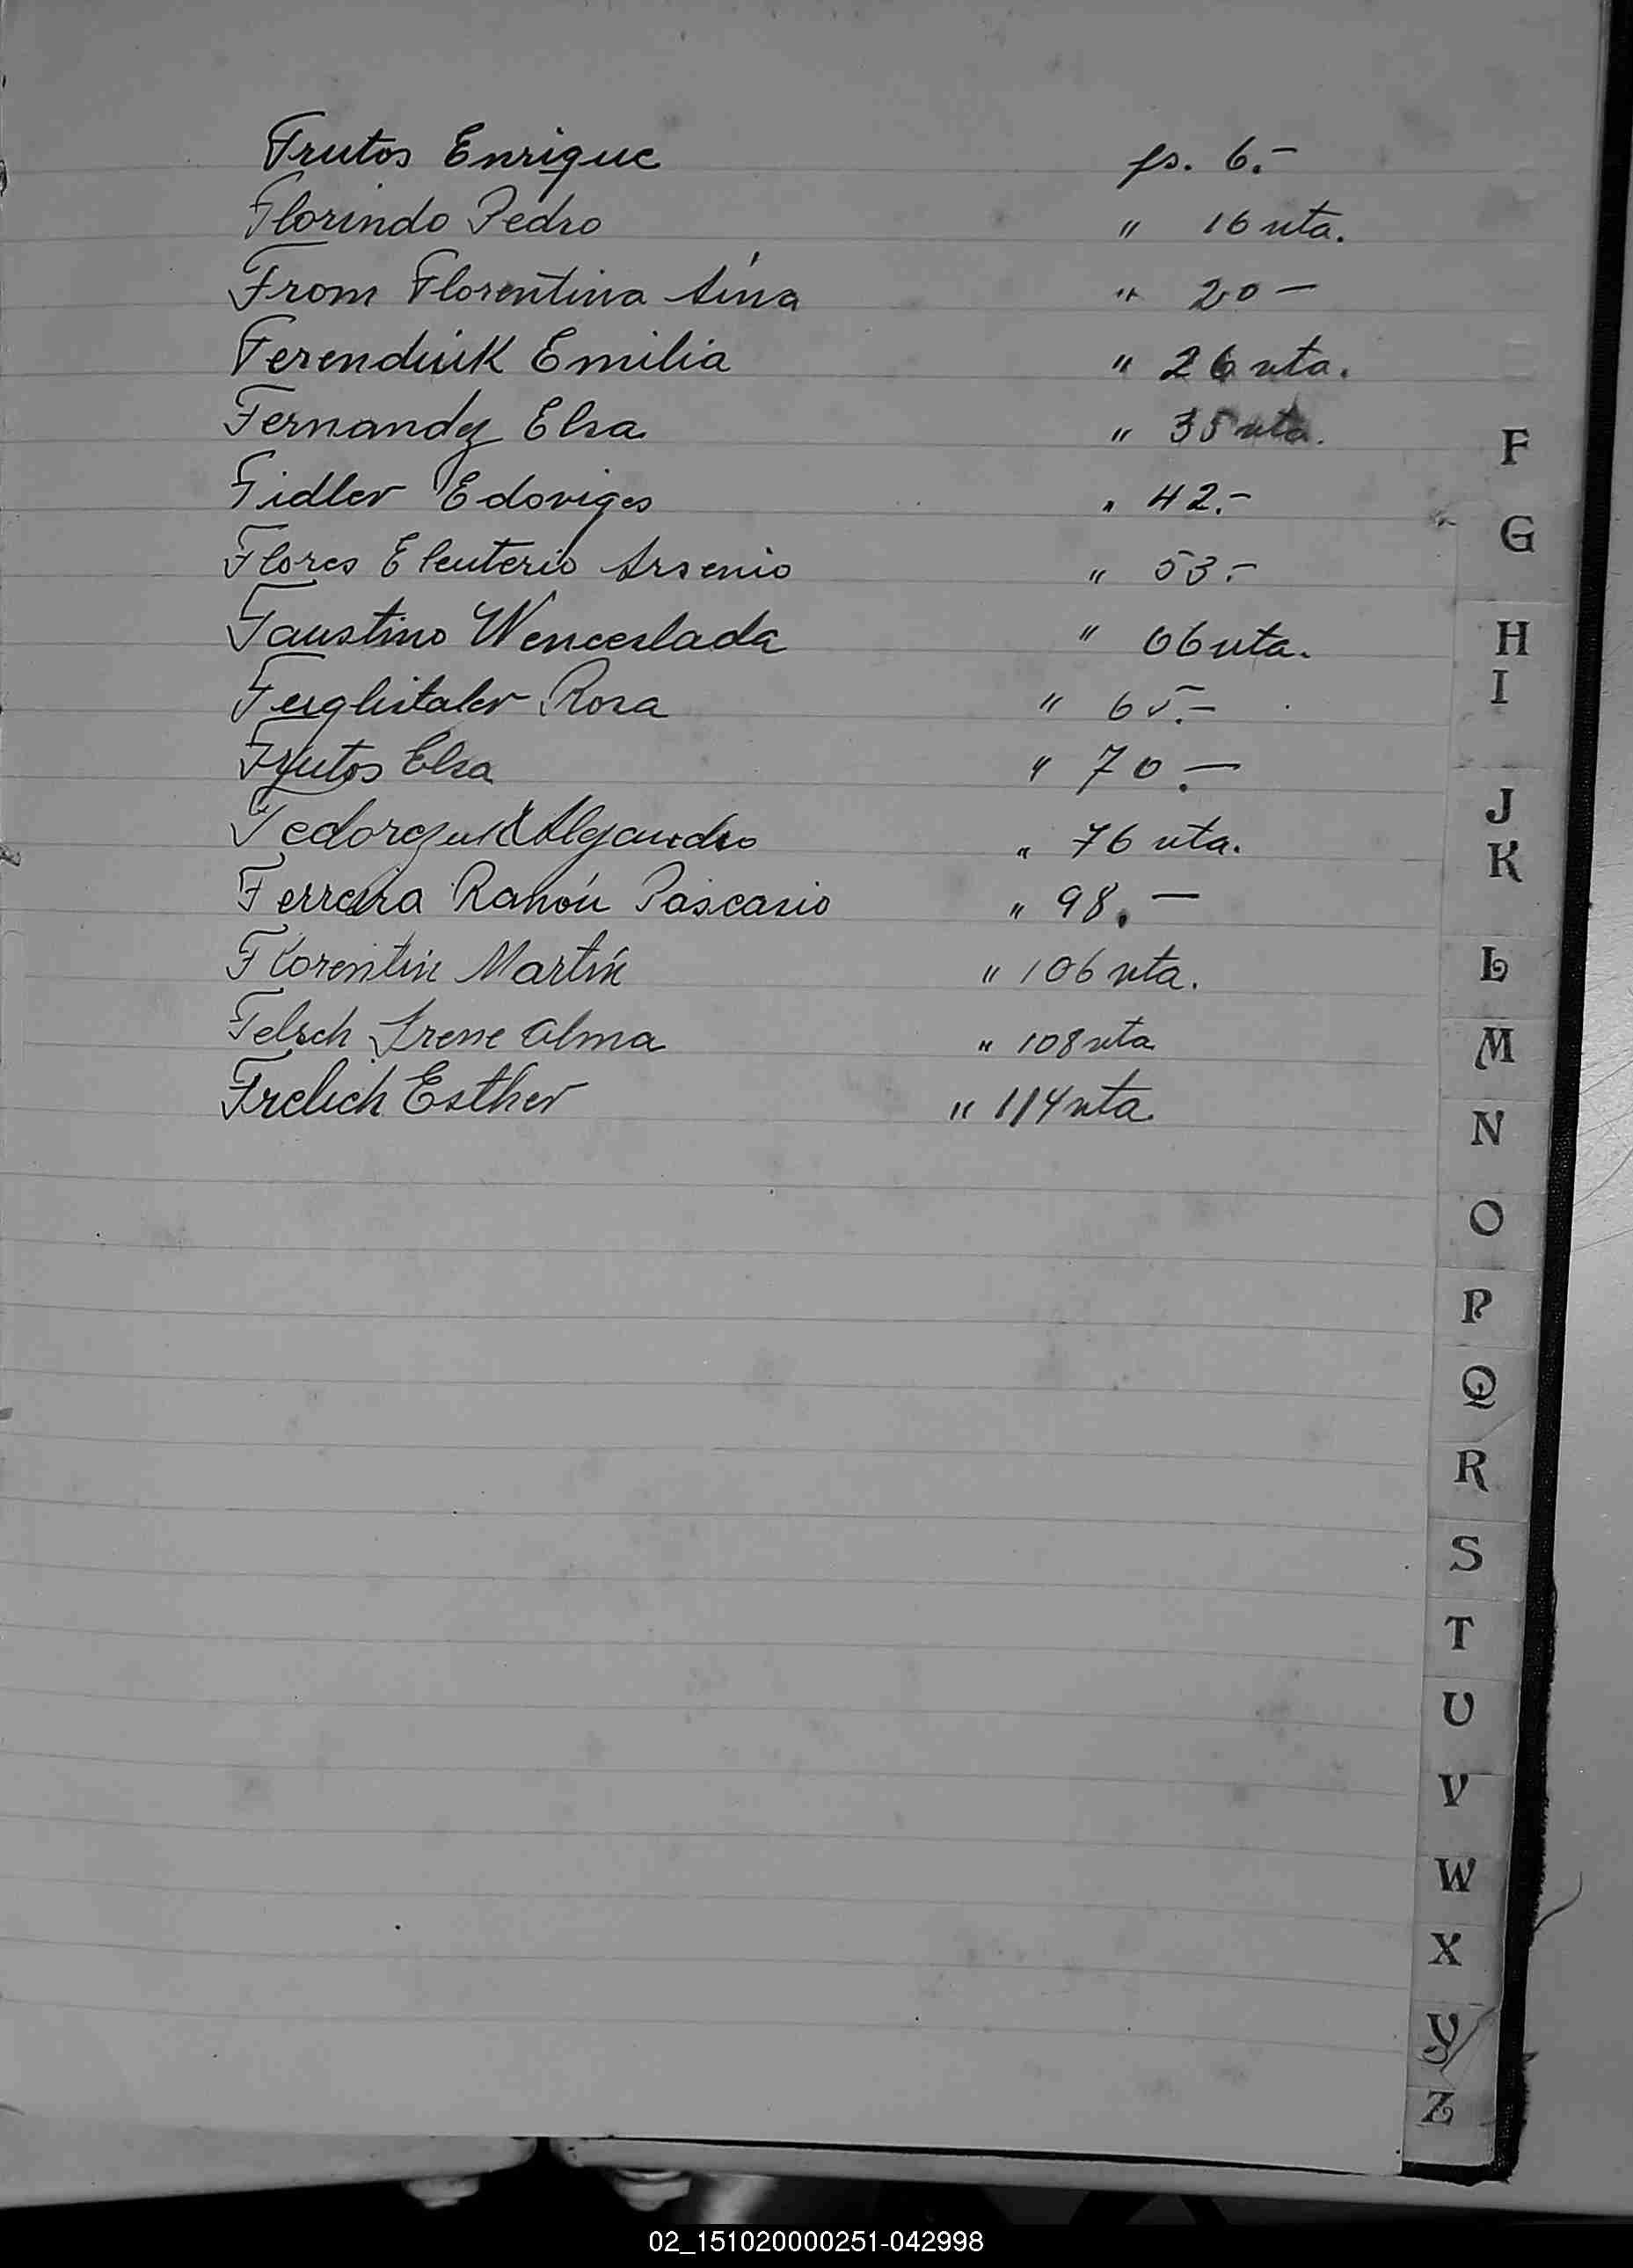 Frutos Enrique fs. 6.-
Florindo Pedro " 16 vta.
From Florentina Aína " 20 -
Ferendiuk Emilia " 26 vta.
Fernandez Elsa " 35 vta.
Fidler Edoviges " 42.-
Flores Eleuterio Arsenio " 53.-
Faustino Wenceslada " 06 vta.
Rosa " 65.-
Frutos Elsa " 70.-
Fedorczuk Alejandro " 76 vta.
Ferreira Ramón Pascasio " 98.-
Florentin Martín " 106 vta.
Felsch Irene Alma " 108 vta
Frelich Esther " 114 vta.
F
G
H
I
J
K
L
M
N
O
P
Q
R
S
T
U
V
W
X
Y
Z
02_151020000251-042998